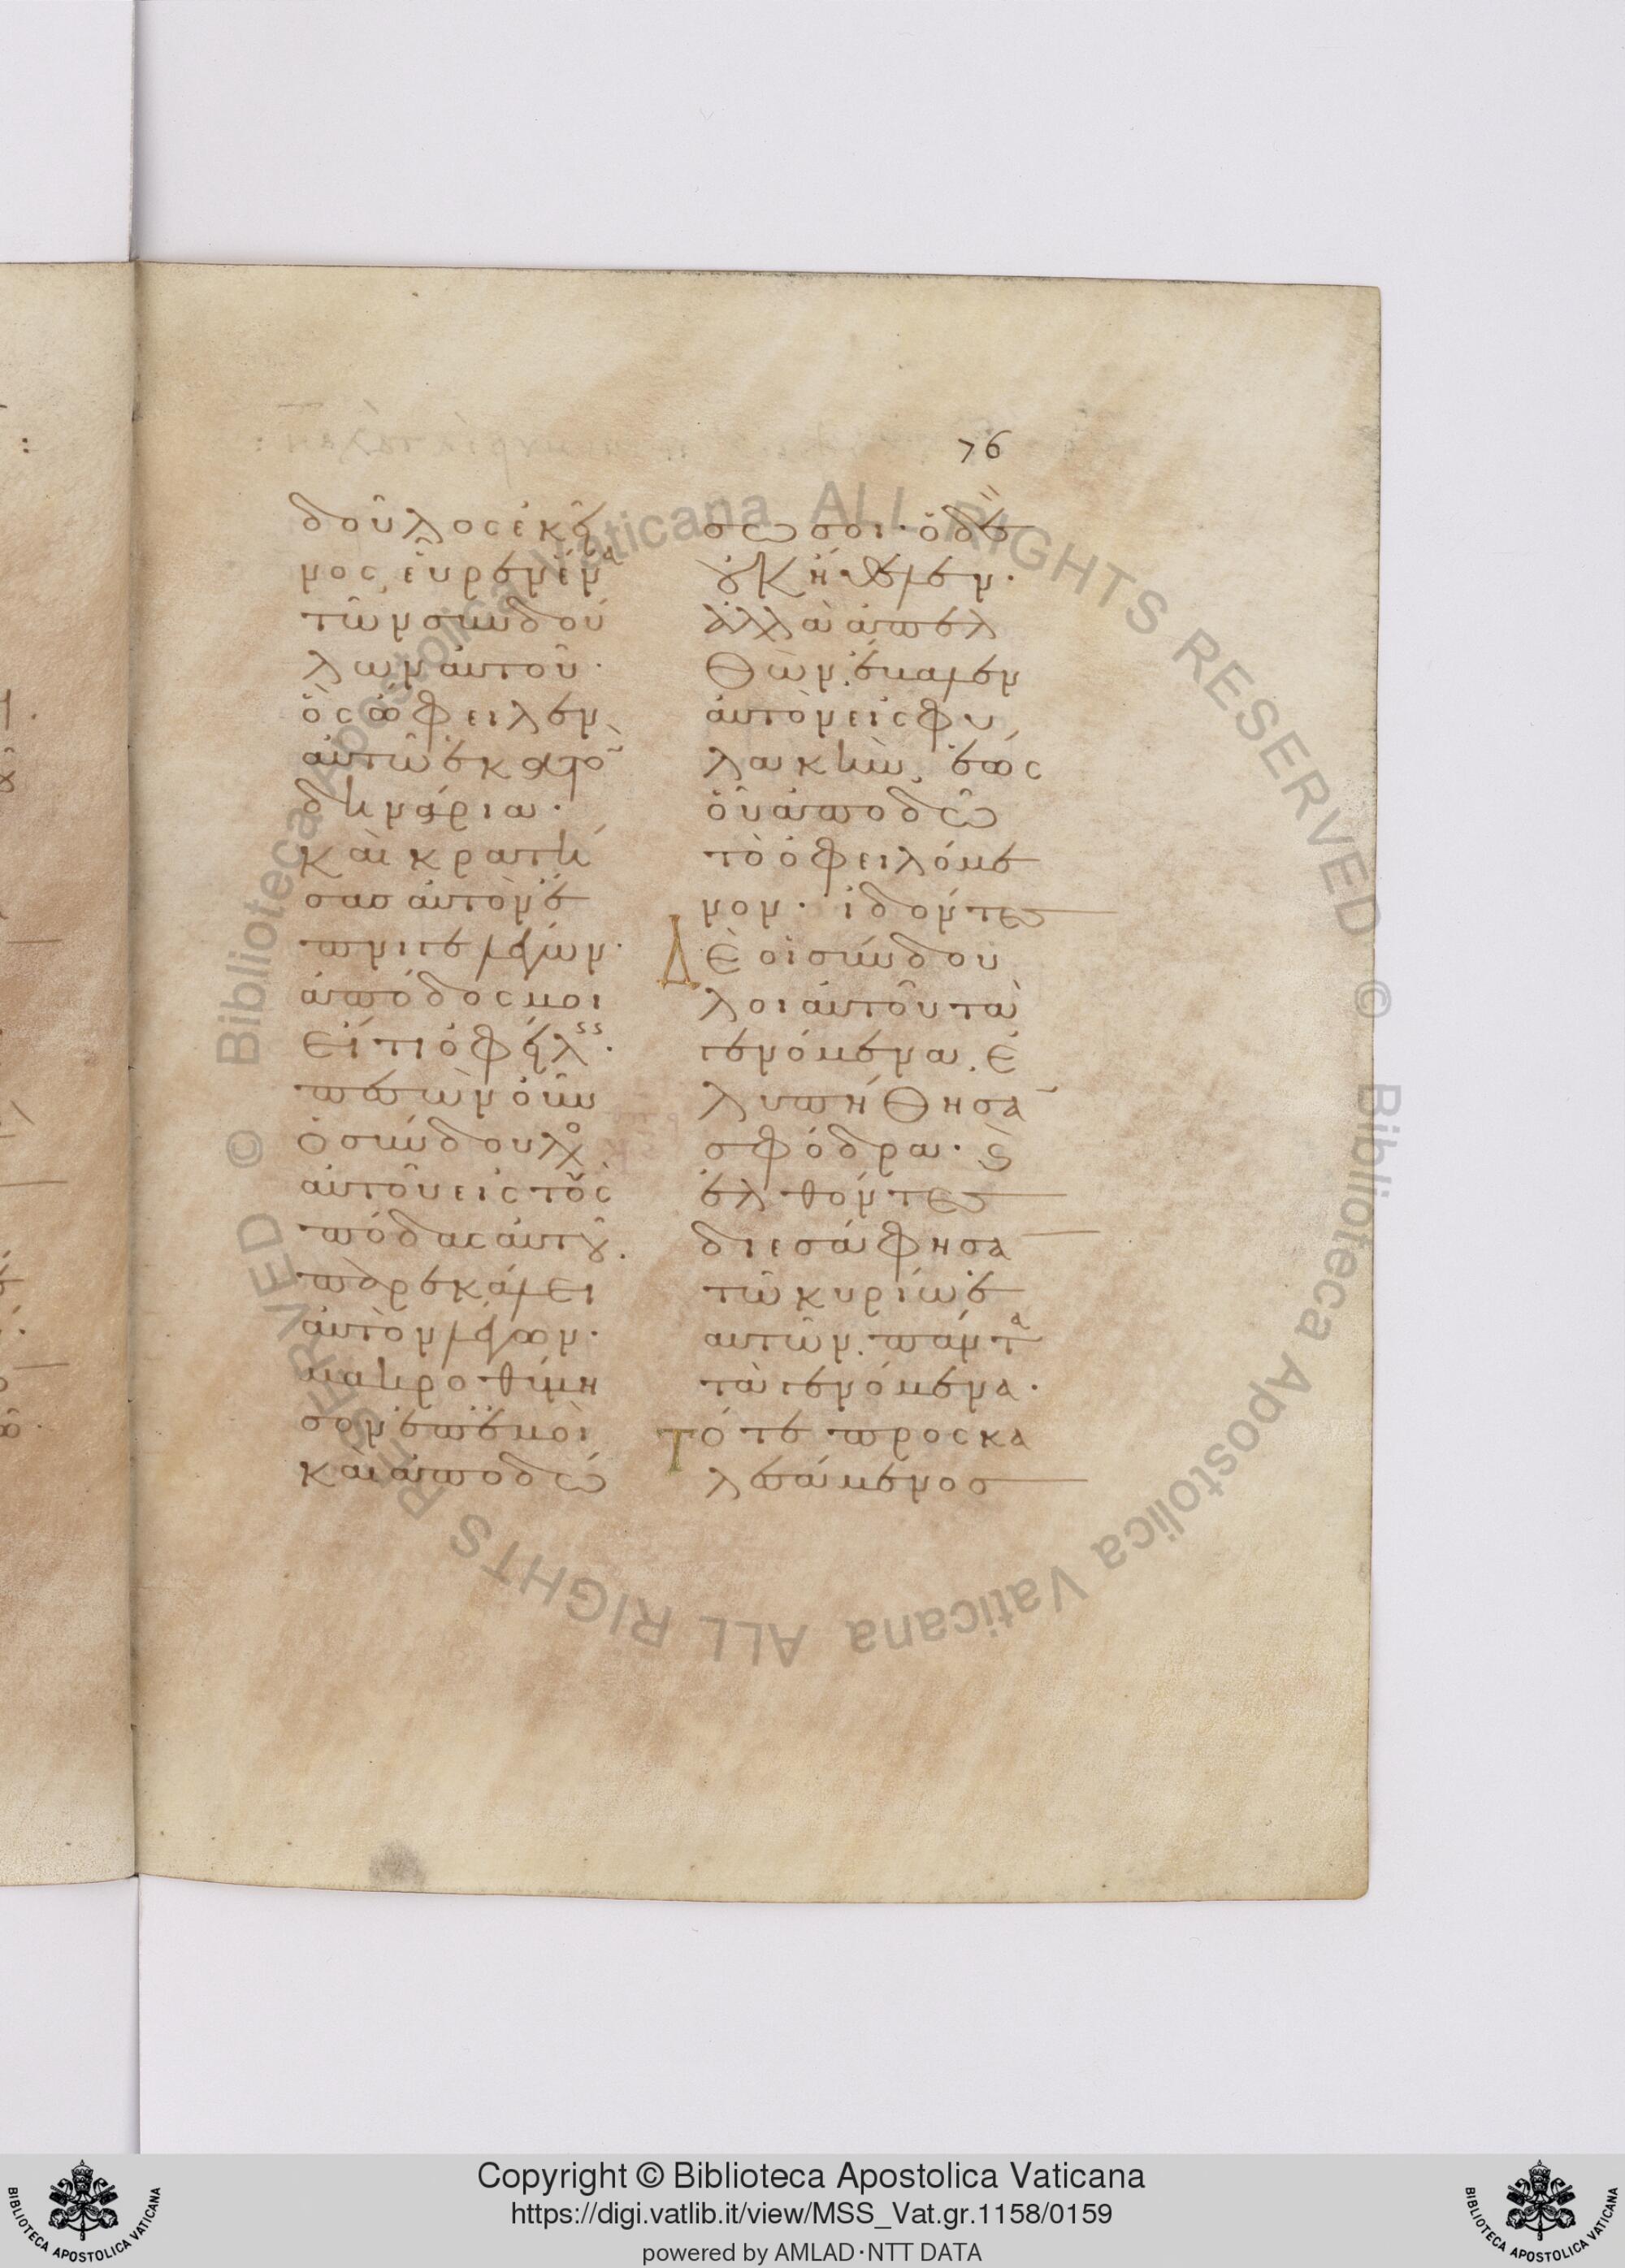 76
δοῦλος ἐκεῖ
νος εὗρεν ἕνα
τῶν συνδού
λων αὐτοῦ·
ὃς ὤφειλεν
αὐτῶ ἑκατὸ
δηνάρια·
καὶ κρατή
σας αὐτὸν ἔ
πνιγε λέγων·
ἀπόδος μοι
εἴ τι ὀφείλεις·
πεσὼν οὖν
ὁ σύνδουλο
αὐτοῦ εἰς τοὺς
πόδας αὐτοῦ.
παρεκάλει
αὐτὸν λέγων·
μακροθύμη
σον ἐπ ἐμοὶ
καὶ ἀποδώ
σω σοι· ὁ δὲ
οὐκ ἤθελεν·
ἀλλὰ ἀπελ
θὼν ἔβαλεν
αὐτὸν εἰς φυ
λακὴν, ἕως
οὗ ἀποδῶ
τὸ ὀφειλόμε
νον· ἰδόντες
Δὲ οἱ σύνδου
λοι αὐτοῦ τὰ
γενόμενα, ἐ
λυπήθησα
σφόδρα· καὶ
ἐλθόντες
διεσάφησα
τῶ κυρίω ἑ
αυτῶν. πάντα
τὰ γενόμενα·
Τότε προσκα
λεσάμενος
Copyright © Biblioteca Apostolica Vaticana
https://digi.vatlib.it/view/MSS_Vat.gr.1158/0159
powered by AMLAD·NTT DATA
BIBLIOTECA APOSTOLICA VATICANA
BIBLIOTECA APOSTOLICA VATICANA
© Biblioteca Apostolica Vaticana ALL RIGHTS RESERVED
© Biblioteca Apostolica Vaticana ALL RIGHTS RESERVED